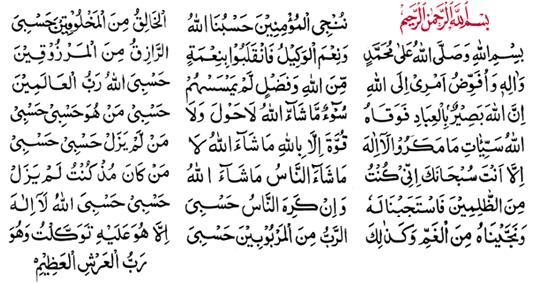 بِسْمِ اللهِ الرَّحْمٰنِ الرَّحِيْمِ
بِسْمِ اللهِ وَصَلَّى اللهُ عَلٰى مُحَمَّدٍ
وَاٰلِهٖ وَاُفَوِّضُ اَمْرِىْ اِلَى اللهِ
اِنَّ اللهَ بَصِيْرٌ بِالْعِبَادِ فَوَقَاهُ
اللهُ سَيِّئَاتِ مَا مَكَرُوْا لَا اِلٰهَ
اِلَّا اَنْتَ سُبْحَانَكَ اِنِّىْ كُنْتُ
مِنَ الظّٰلِمِيْنَ فَاسْتَجَبْنَا لَهٗ
وَنَجَّيْنَاهُ مِنَ الْغَمِّ وَكَذٰلِكَ
نُنْجِى الْمُؤْمِنِيْنَ حَسْبُنَا اللهُ
وَنِعْمَ الْوَكِيْلُ فَانْقَلَبُوْا بِنِعْمَةٍ
مِّنَ اللهِ وَفَضْلٍ لَّمْ يَمْسَسْهُمْ
سُوْٓءٌ مَّا شَآءَ اللهُ لَا حَوْلَ وَلَا
قُوَّةَ اِلَّا بِاللهِ مَا شَآءَ اللهُ لَا
مَا شَآءَ النَّاسُ مَا شَآءَ اللهُ
وَاِنْ كَرِهَ النَّاسُ حَسْبِىَ
الرَّبُّ مِنَ الْمَرْبُوْبِيْنَ حَسْبِىَ
الْخَالِقُ مِنَ الْمَخْلُوْقِيْنَ حَسْبِىَ
الرَّازِقُ مِنَ الْمَرْزُوْقِيْنَ
حَسْبِىَ اللهُ رَبُّ الْعَالَمِيْنَ
حَسْبِىْ مَنْ هُوَ حَسْبِىْ حَسْبِىْ
مَنْ لَمْ يَزَلْ حَسْبِىْ حَسْبِىْ
مَنْ كَانَ مُذْ كُنْتُ لَمْ يَزَلْ
حَسْبِىْ حَسْبِىَ اللهُ لَا اِلٰهَ
اِلَّا هُوَ عَلَيْهِ تَوَكَّلْتُ وَهُوَ
رَبُّ الْعَرْشِ الْعَظِيْمِ